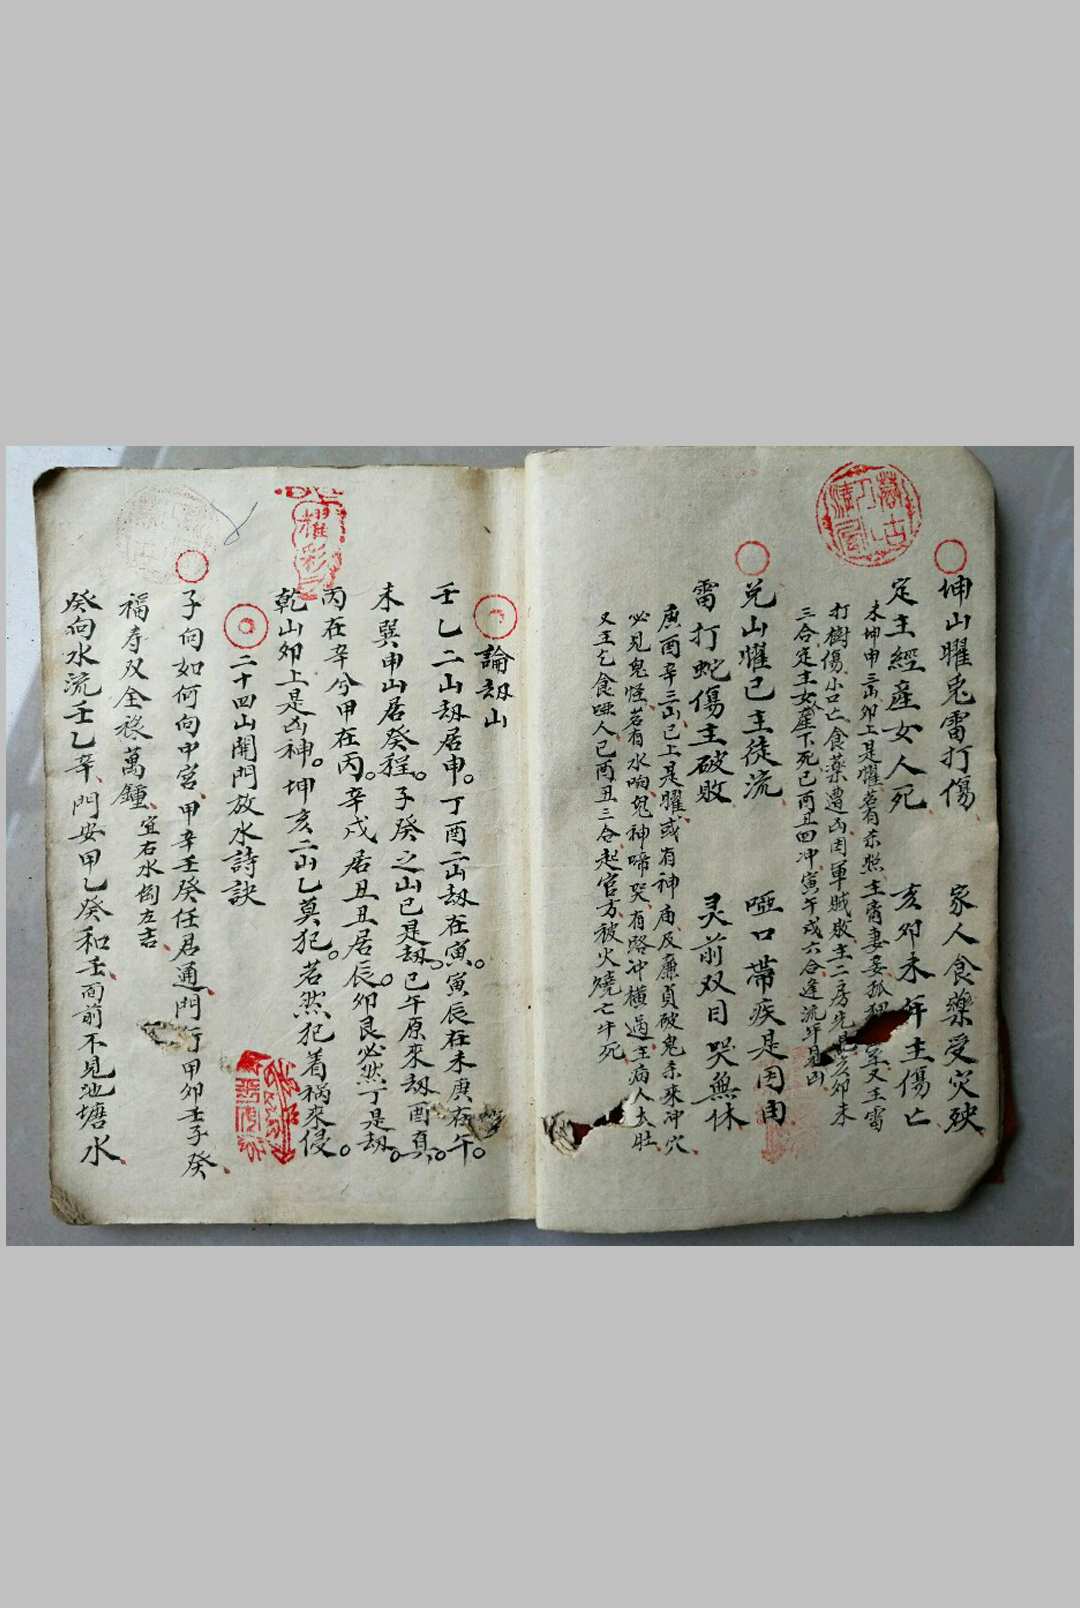 坤山曜兎雷打傷 家人食藥受灾殃
定主經産女人死 亥卯未年主傷亡
未坤申三山卯上是曜若有杀照主剋妻妾孤 又主雷
打樹傷小口亡食藥遭凶因軍賊敗主二房先見亥卯未
三合定主女産下死巳酉丑四冲寅午戌六合逢流年見凶
兑山曜巳主徒流 啞口帶疾是因由
雷打蛇傷主破敗 灵前双目哭無休
庚酉辛三山巳上是曜或有神庙及廉貞破鬼杀來冲穴
必見鬼怪若有水响鬼神啼哭有路冲橫過主病人大肚
又主乞食啞人巳酉丑三合起官方被火燒亡年死
論刼山
壬乙二山刼居申。丁酉二山刼在寅。寅辰在未庚在午。
未巽申山居癸程。子癸之山巳是刼。巳午原來刼酉真。
丙在辛兮甲在丙。辛戌居丑丑居辰。卯艮必然丁是刼。
乾山卯上是凶神。坤亥二山乙莫犯。若然犯着禍來侵。
耀彩
二十四山開門放水詩訣
子向如何向申宮甲辛壬癸任君通門行甲卯壬子癸
福寿双全祿萬鍾宜右水倒左吉
癸向水流壬乙辛門安甲乙癸和壬面前不見池塘水